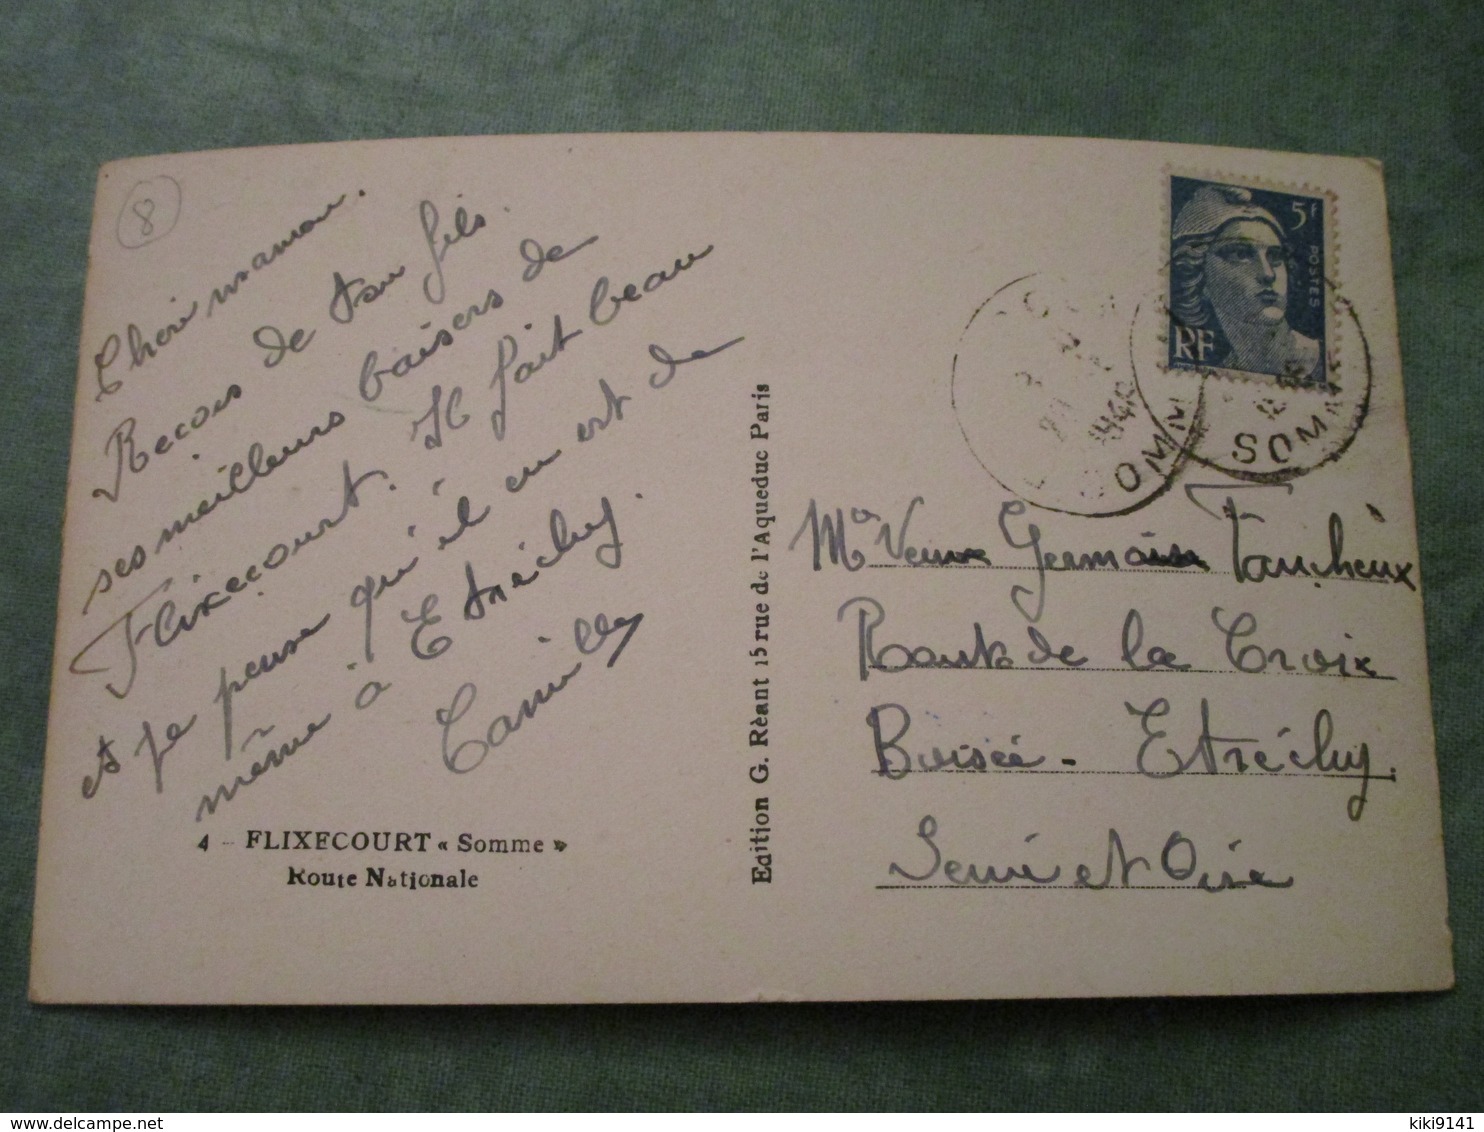 8
Chère maman.
Recois de ton fils.
ses meilleurs baisers de
Flixecourt. Il fait beau
et je pense qu'il en est de
même à Etréchy.
Camille
4 - FLIXECOURT « Somme »
Route Nationale
Edition G. Réant 15 rue de l'Aqueduc Paris
5F
POSTES
RF
SOMME
SOMME
Me Veuve Germain
Route de la Croix
Boisée - Etréchy
Seine et Oise
delcampe.net
kiki9141